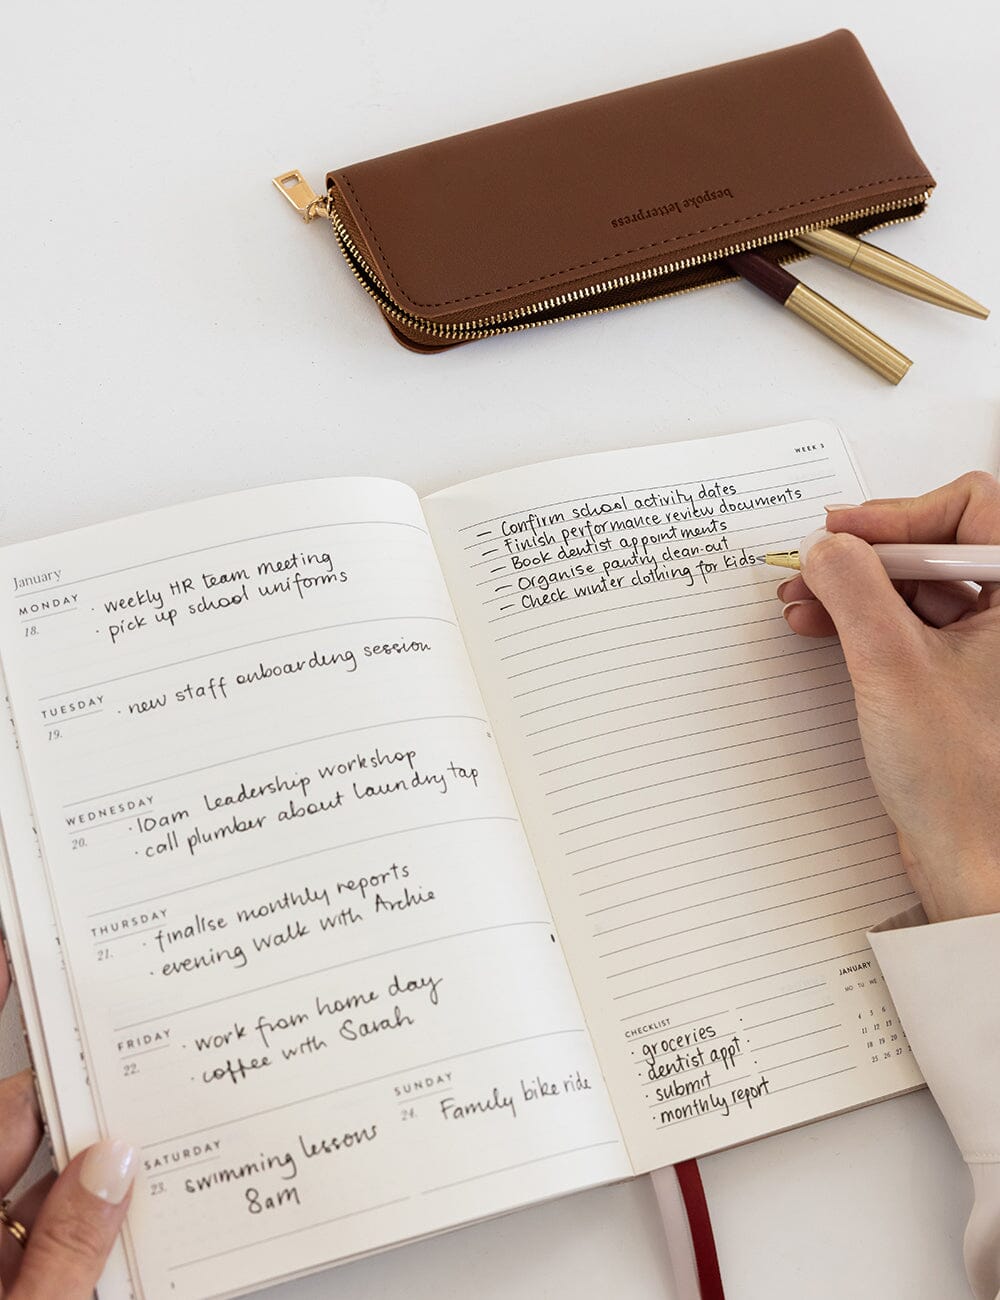 bespoke letterpress
January
MONDAY
18.
· weekly HR team meeting
· pick up school uniforms
TUESDAY
19.
· new staff onboarding session
WEDNESDAY
20.
· 10am Leadership workshop
· call plumber about laundry tap
THURSDAY
21.
· finalise monthly reports
· evening walk with Archie
FRIDAY
22.
· work from home day
· coffee with Sarah
SATURDAY
23.
swimming lessons
8am
SUNDAY
24.
Family bike ride
WEEK 3
– Confirm school activity dates
– Finish performance review documents
– Book dentist appointments
– Organise pantry clean-out
– Check winter clothing for kids
CHECKLIST
· groceries
· dentist appt
· submit
· monthly report
JANUARY
MO TU WE
4 5 6
11 12 13
18 19 20
25 26 27